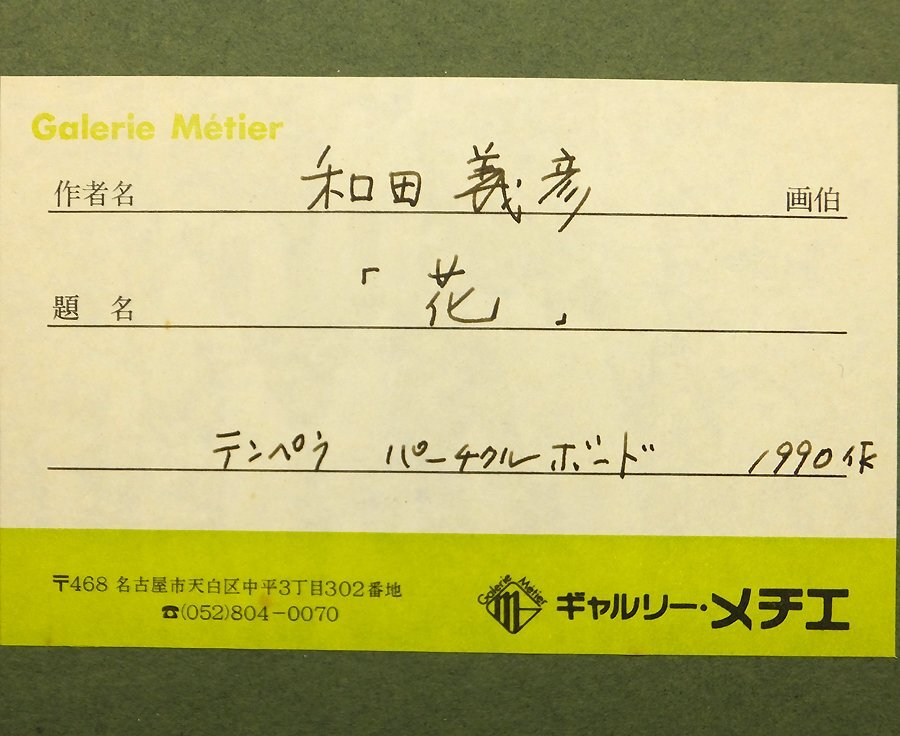 Galerie Métier
作者名 和田 義彦 画伯
題 名 「 花 」
テンペラ パーチクルボード 1990作
〒468 名古屋市天白区中平3丁目302番地
☎(052)804-0070
Galerie Métier
ギャルリー・メチエ